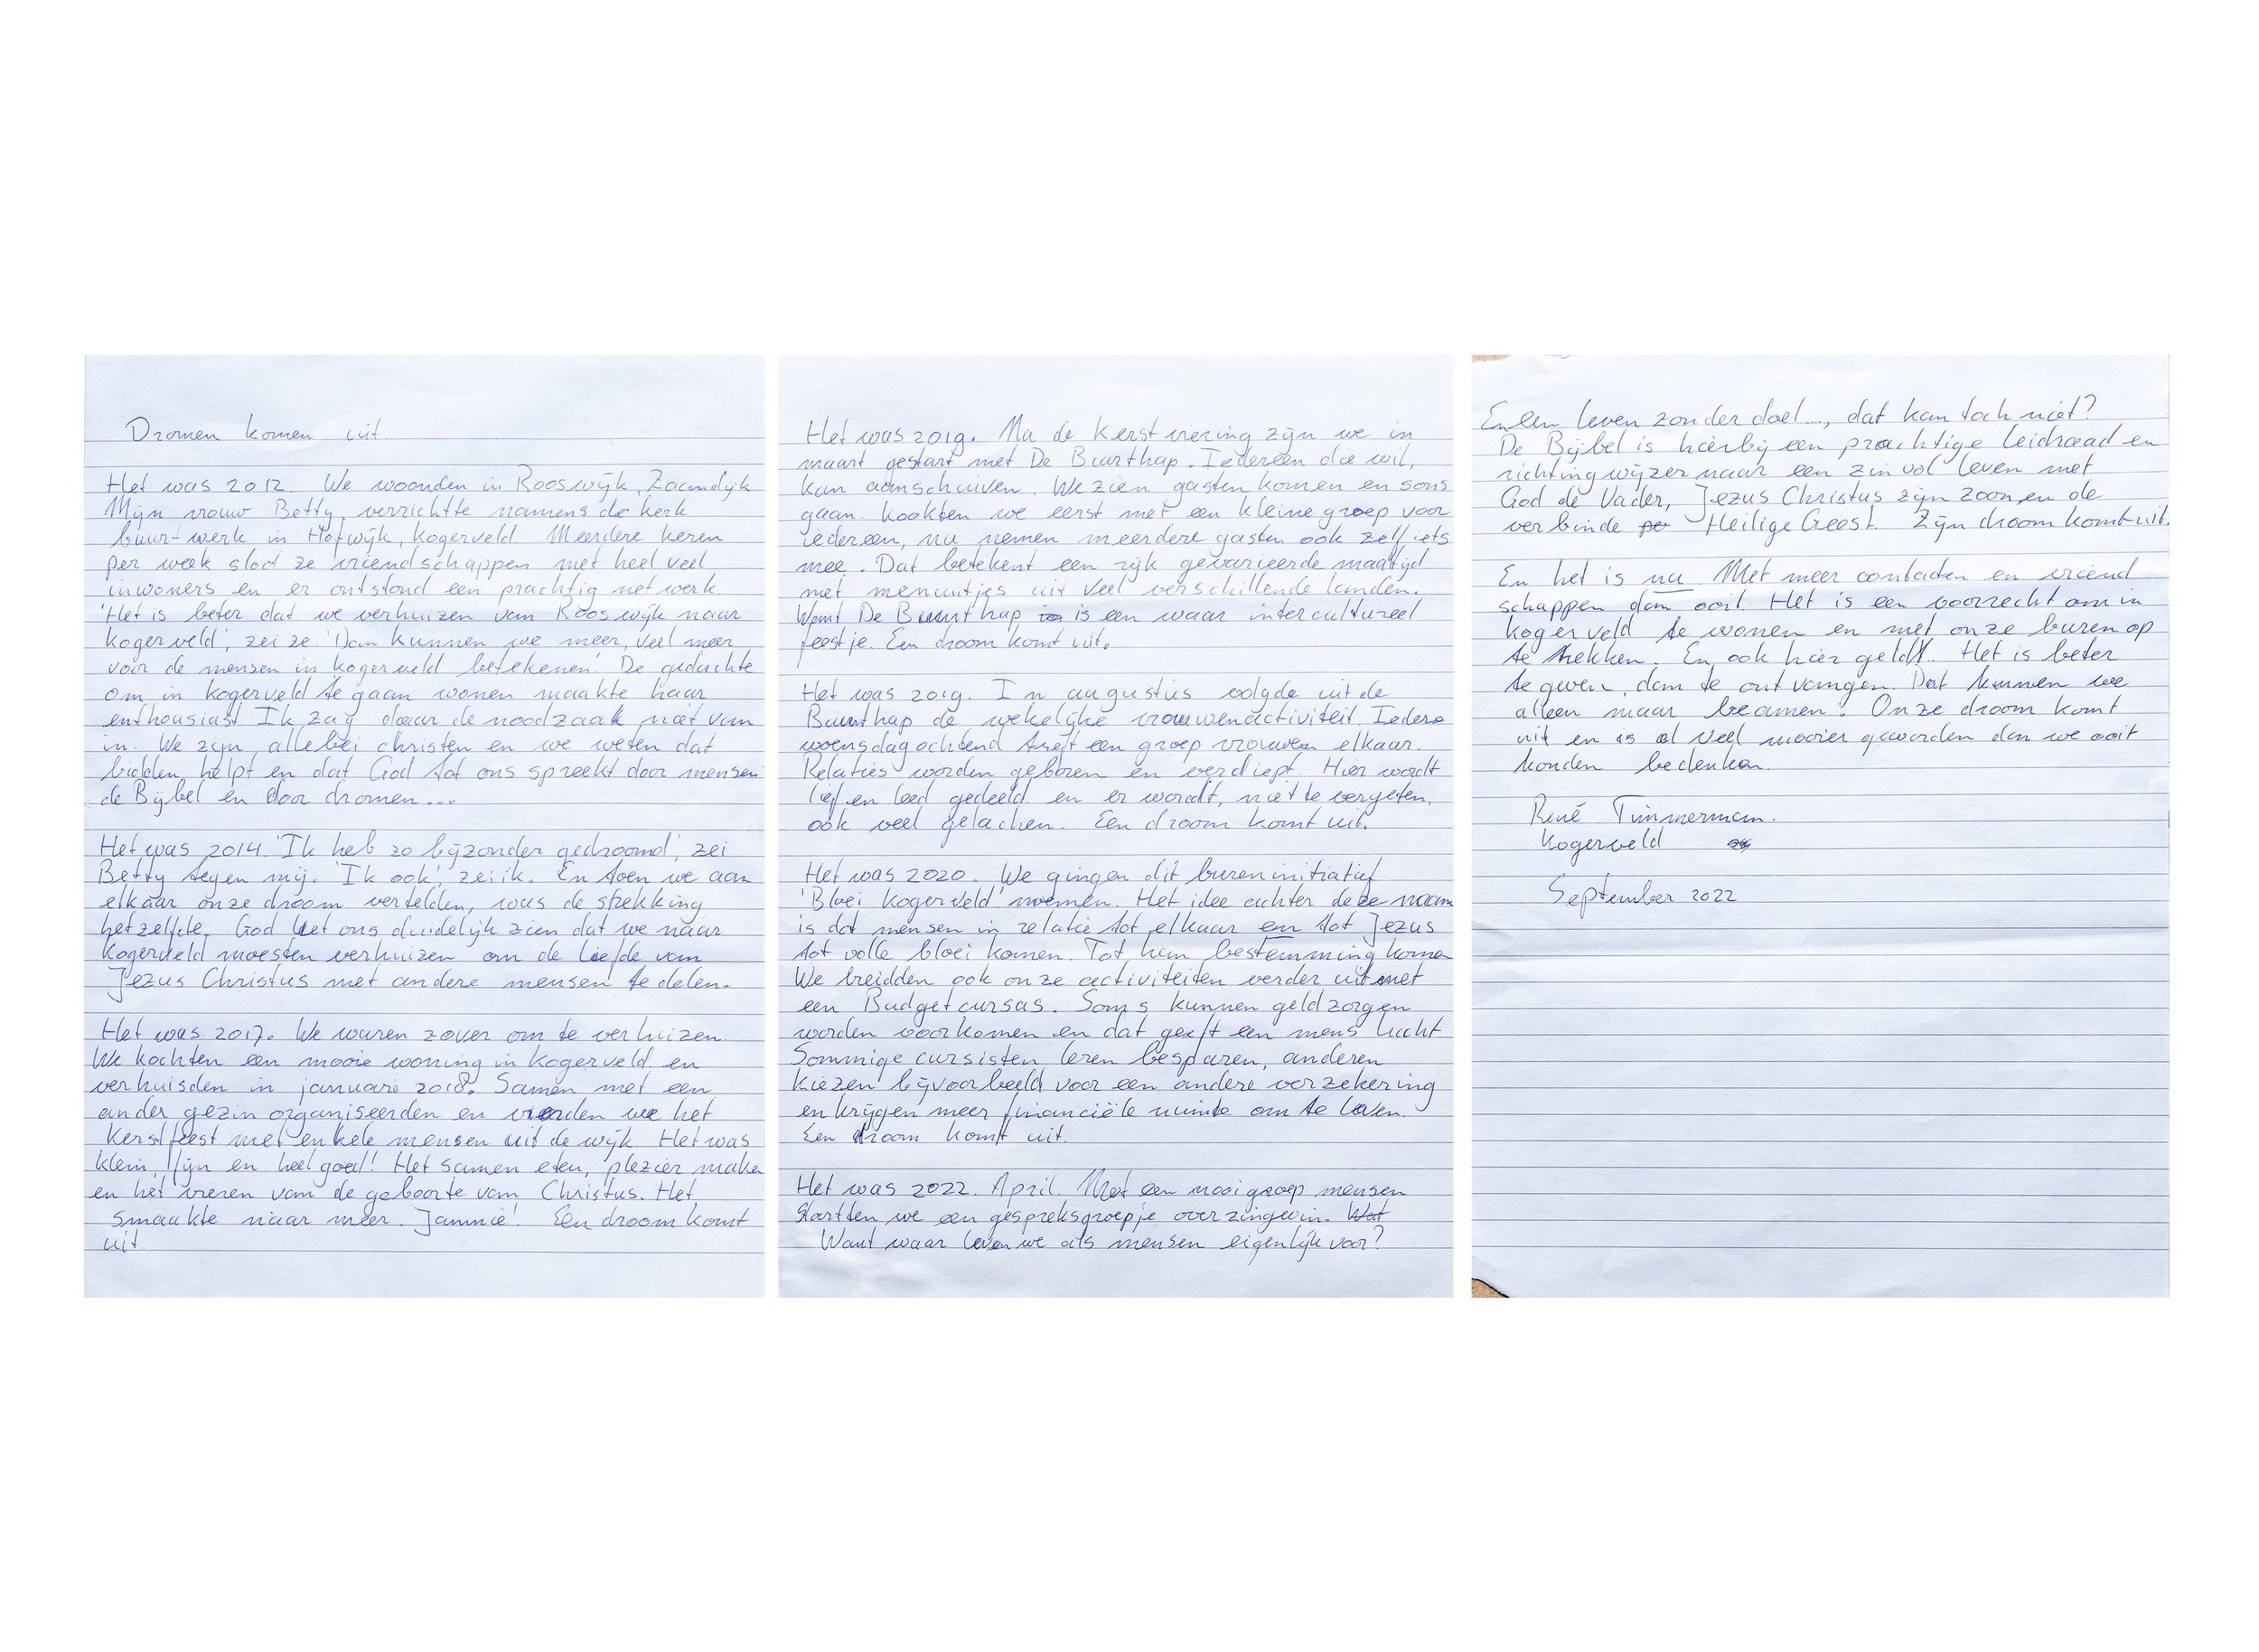 Dromen komen uit.
Het was 2012. We woonden in Rooswijk, Zaandijk
Mijn vrouw Betty, verrichtte namens de kerk
buurt-werk in Hofwijk, Kogerveld. Meerdere keren
per week sloot ze vriendschappen met heel veel
inwoners en er ontstond een prachtig netwerk.
'Het is beter dat we verhuizen van Rooswijk naar
Kogerveld', zei ze. 'Dan kunnen we meer, veel meer
voor de mensen in Kogerveld betekenen.' De gedachte
om in Kogerveld te gaan wonen maakte haar
enthousiast. Ik zag daar de noodzaak niet van
in. We zijn allebei christen en we weten dat
bidden helpt en dat God tot ons spreekt door mensen
de Bijbel en door dromen...
Het was 2014. 'Ik heb zo bijzonder gedroomd', zei
Betty tegen mij. 'Ik ook', zei ik. En toen we aan
elkaar onze droom vertelden, was de strekking
hetzelfde. God liet ons duidelijk zien dat we naar
Kogerveld moesten verhuizen om de liefde van
Jezus Christus met andere mensen te delen.
Het was 2017. We waren zover om te verhuizen.
We kochten een mooie woning in Kogerveld en
verhuisden in januari 2018. Samen met een
ander gezin organiseerden en vierden we het
Kerstfeest met enkele mensen uit de wijk. Het was
klein, fijn en heel goed! Het samen eten, plezier maken
en het vieren van de geboorte van Christus. Het
smaakte naar meer. Jammie! Een droom komt
uit.
Het was 2019. Na de Kerstviering zijn we in
maart gestart met De Buurthap. Iedereen die wil,
kan aanschuiven. We zien gasten komen en soms
gaan. Kookten we eerst met een kleine groep voor
iedereen, nu nemen meerdere gasten ook zelf iets
mee. Dat betekent een rijk gevarieerde maaltijd
met menuutjes uit veel verschillende landen.
Want De Buurthap is een waar intercultureel
feestje. Een droom komt uit.
Het was 2019. In augustus volgde uit de
Buurthap de wekelijke vrouwenactiviteit. Iedere
woensdagochtend treft een groep vrouwen elkaar.
Relaties worden geboren en verdiept. Hier wordt
lief en leed gedeeld en er wordt, niet te vergeten,
ook veel gelachen. Een droom komt uit.
Het was 2020. We gingen dit bureninitiatief
'Bloei Kogerveld' noemen. Het idee achter deze naam
is dat mensen in relatie tot elkaar en tot Jezus
tot volle bloei komen. Tot hun bestemming komen
We breidden ook onze activiteiten verder uit met
een Budgetcursus. Soms kunnen geldzorgen
worden voorkomen en dat geeft een mens lucht
Sommige cursisten leren besparen, anderen
kiezen bijvoorbeeld voor een andere verzekering
en krijgen meer financiële ruimte om te leven.
Een droom komt uit.
Het was 2022. April. Met een mooi groep mensen
startten we een gespreksgroepje over zingevin. Wat
Want waar leven we als mensen eigenlijk voor?
En een leven zonder doel..., dat kan toch niet?
De Bijbel is hierbij een prachtige leidraad en
richtingwijzer naar een zinvol leven met
God de Vader, Jezus Christus zijn zoon en de
verbinde Heilige Geest. Zijn droom komt uit.
En het is nu. Met meer contacten en vriend
schappen dan ooit. Het is een voorrecht om in
Kogerveld te wonen en met onze buren op
te trekken. En ook hier geldt. Het is beter
te geven, dan te ontvangen. Dat kunnen we
alleen maar beamen. Onze droom komt
uit en is al veel mooier geworden dan we ooit
konden bedenken.
René Timmerman.
Kogerveld
September 2022